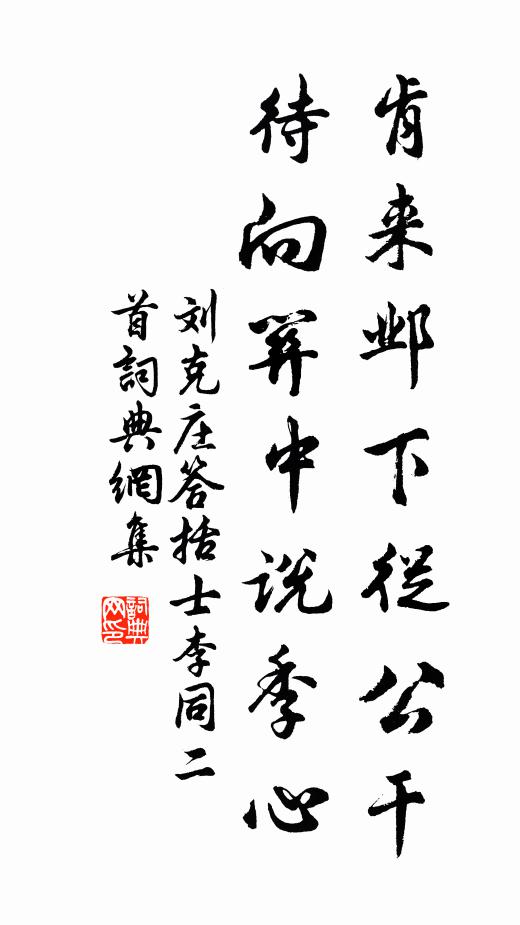 肯来邺下從公干
待向関中説季心
刘克庄答括士李同二
首詞典網集
詞典
网印